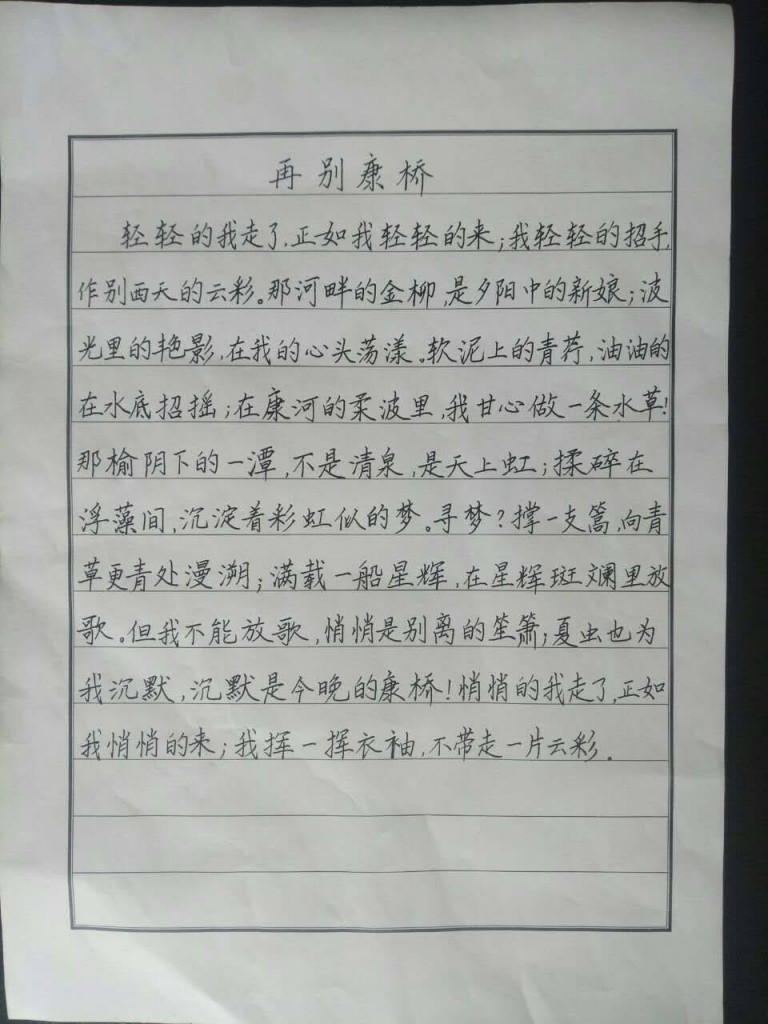 再别康桥
轻轻的我走了,正如我轻轻的来;我轻轻的招手,
作别西天的云彩。那河畔的金柳,是夕阳中的新娘;波
光里的艳影,在我的心头荡漾。软泥上的青荇,油油的
在水底招摇;在康河的柔波里,我甘心做一条水草!
那榆阴下的一潭,不是清泉,是天上虹;揉碎在
浮藻间,沉淀着彩虹似的梦。寻梦?撑一支篙,向青
草更青处漫溯;满载一船星辉,在星辉斑斓里放
歌。但我不能放歌,悄悄是别离的笙箫;夏虫也为
我沉默,沉默是今晚的康桥!悄悄的我走了,正如
我悄悄的来;我挥一挥衣袖,不带走一片云彩.